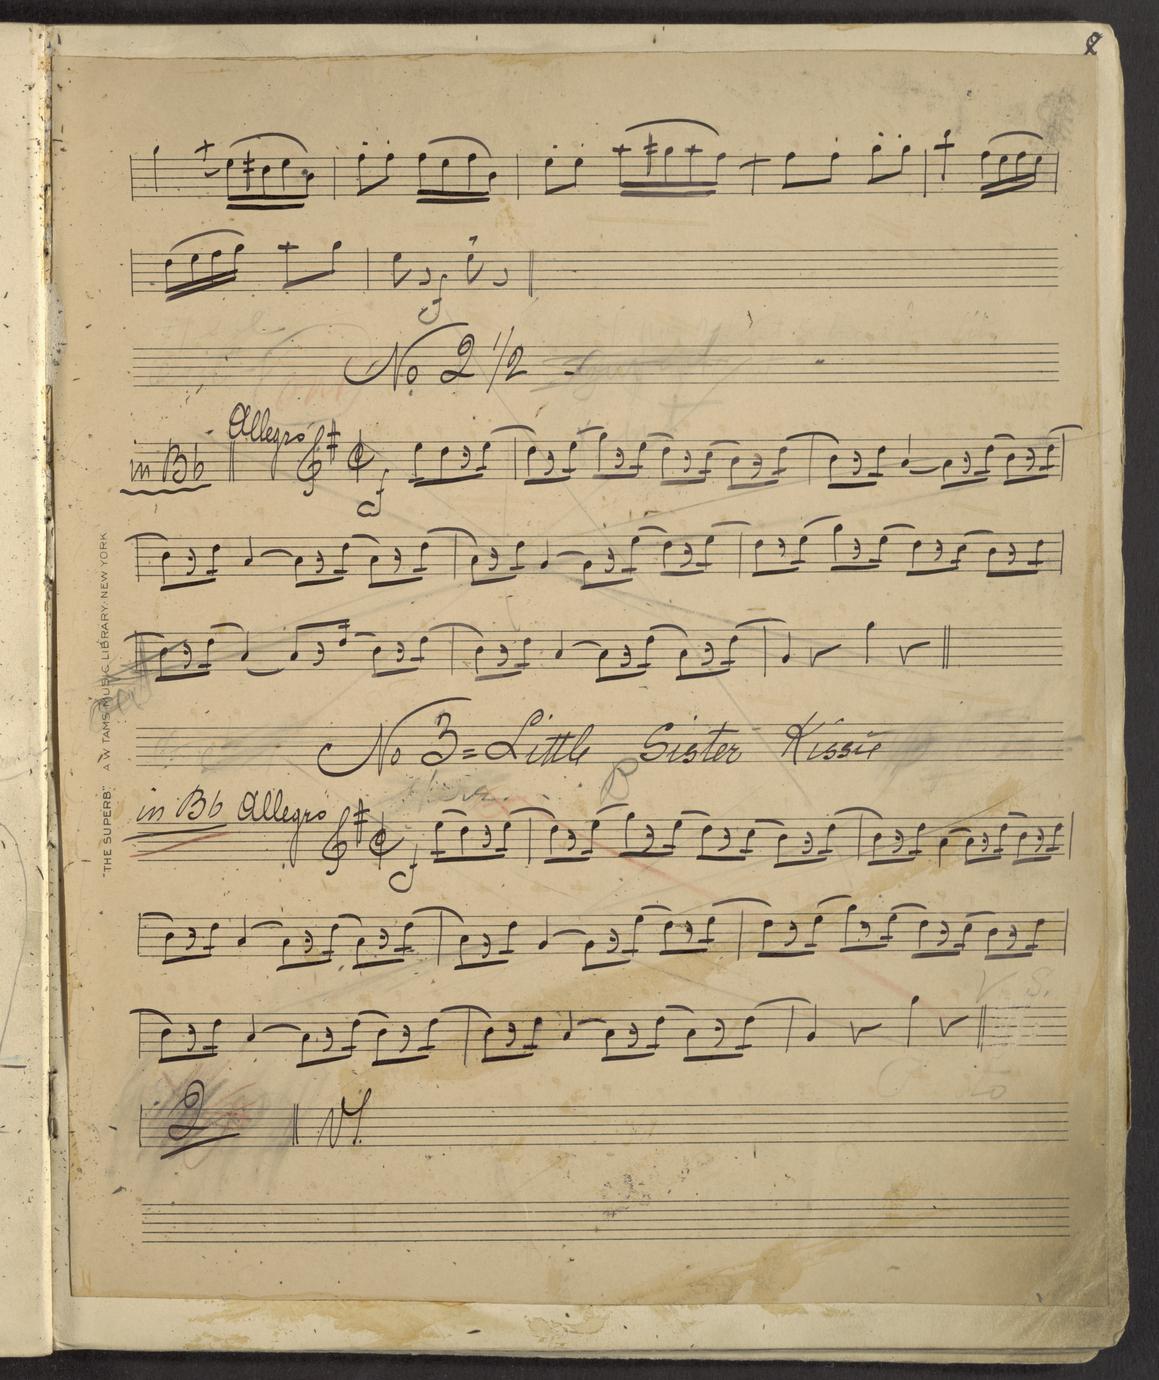 8
f
No 2 1/2
Allegro
in Bb
f
No 3 = Little Sister Kissie
in Bb Allegro
f
V. S.
2 VS.
"THE SUPERB" A.W. TAMS MUSIC LIBRARY. NEW YORK